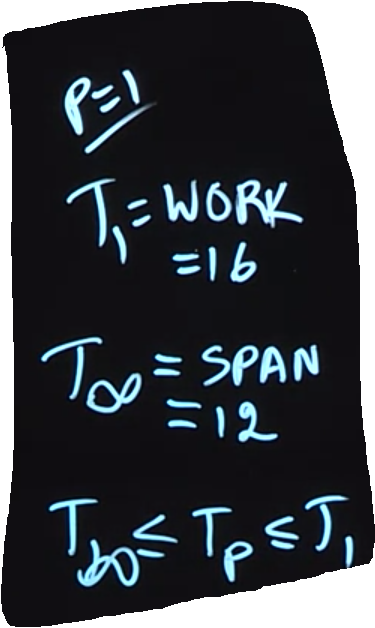 P=1
T₁ = WORK
=16
T∞ = SPAN
=12
T∞ ≤ Tₚ ≤ T₁